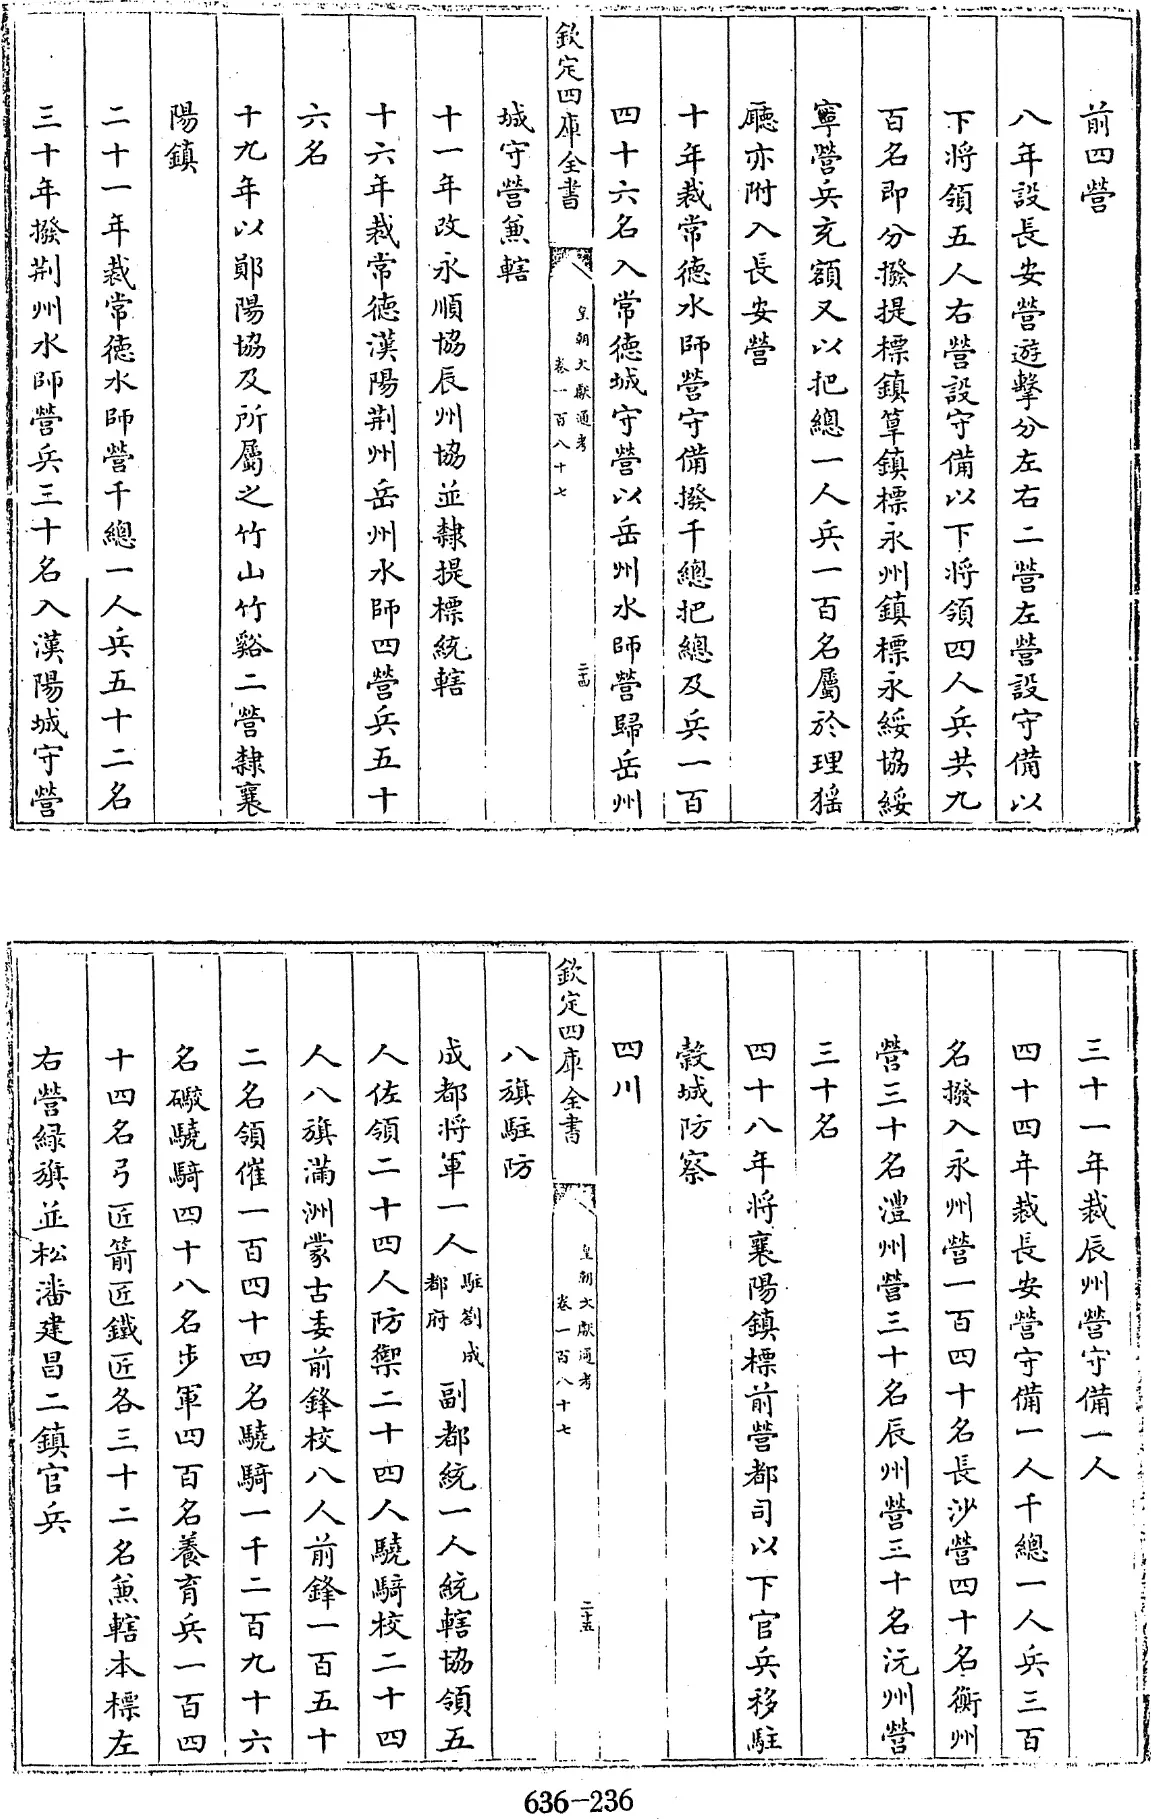 前四營
八年設長安營遊擊分左右二營左營設守備以
下將領五人右營設守備以下將領四人兵共九
百名即分撥提標鎮筸鎮標永州鎮標永綏協綏
寧營兵充額又以把總一人兵一百名屬於理猺
廳亦附入長安營
十年裁常德水師營守備撥千總把總及兵一百
四十六名入常德城守營以岳州水師營歸岳州
欽定四庫全書
皇朝文獻通考
卷一百八十七
二十四
城守營兼轄
十一年改永順協辰州協並隸提標統轄
十六年裁常德漢陽荆州岳州水師四營兵五十
六名
十九年以鄖陽協及所屬之竹山竹谿二營隸襄
陽鎮
二十一年裁常德水師營千總一人兵五十二名
三十年撥荆州水師營兵三十名入漢陽城守營
三十一年裁辰州營守備一人
四十四年裁長安營守備一人千總一人兵三百
名撥入永州營一百四十名長沙營四十名衡州
營三十名澧州營三十名辰州營三十名沅州營
三十名
四十八年將襄陽鎮標前營都司以下官兵移駐
穀城防察
四川
欽定四庫全書
皇朝文獻通考
卷一百八十七
二十五
八旗駐防
成都將軍一人駐劄成都府副都統一人統轄協領五
人佐領二十四人防禦二十四人驍騎校二十四
人八旗滿洲蒙古委前鋒校八人前鋒一百五十
二名領催一百四十四名驍騎一千二百九十六
名礮驍騎四十八名步軍四百名養育兵一百四
十四名弓匠箭匠鐵匠各三十二名兼轄本標左
右營緑旗並松潘建昌二鎮官兵
636-236